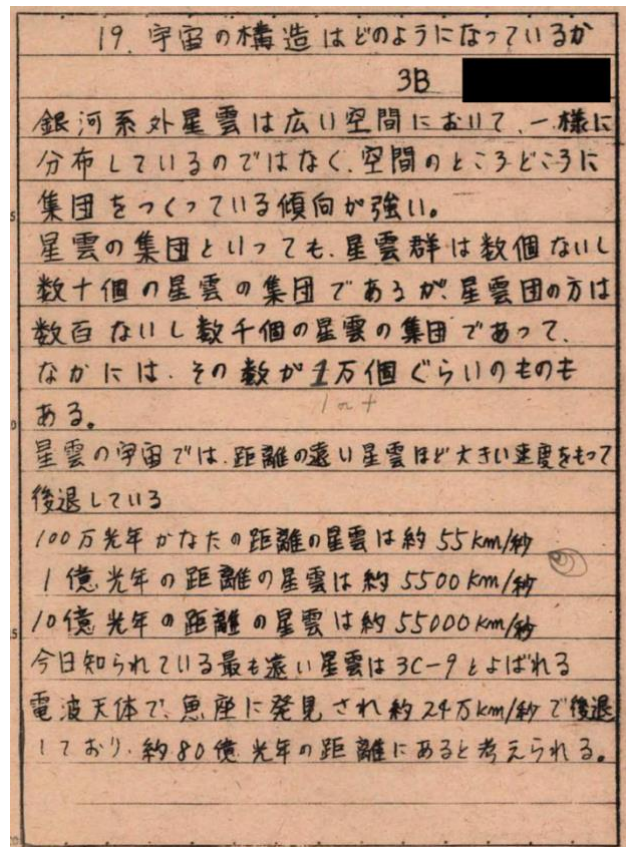 19. 宇宙の構造はどのようになっているか
3B
銀河系外星雲は広い空間において、一様に
分布しているのではなく、空間のところどころに
集団をつくっている傾向が強い。
星雲の集団といっても、星雲群は数個ないし
数十個の星雲の集団であるが、星雲団の方は
数百ないし数千個の星雲の集団であって、
なかには、その数が1万個ぐらいのものも
ある。
星雲の宇宙では、距離の遠い星雲ほど大きい速度をもって
後退している
100万光年かなたの距離の星雲は約55km/秒
1億光年の距離の星雲は約5500km/秒
10億光年の距離の星雲は約55000km/秒
今日知られている最も遠い星雲は3C-9とよばれる
電波天体で、魚座に発見され約24万km/秒で後退
しており、約80億光年の距離にあると考えられる。